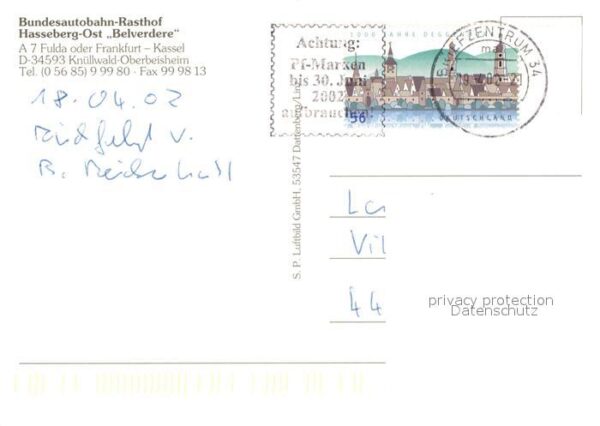 Bundesautobahn-Rasthof
Hasseberg-Ost „Belverdere"
A 7 Fulda oder Frankfurt – Kassel
D-34593 Knüllwald-Oberbeisheim
Tel. (0 56 85) 9 99 80 · Fax 99 98 13
18.04.02
Rückfahrt v.
B. Reichenhall
Achtung:
Pf-Marken
bis 30. Juni
2002
aufbrauchen!
BRIEFZENTRUM 34
ma
DEUTSCHLAND
56
S. P. Luftbild GmbH, 53547 Dattenberg/
La
Vil
44
privacy protection
Datenschutz